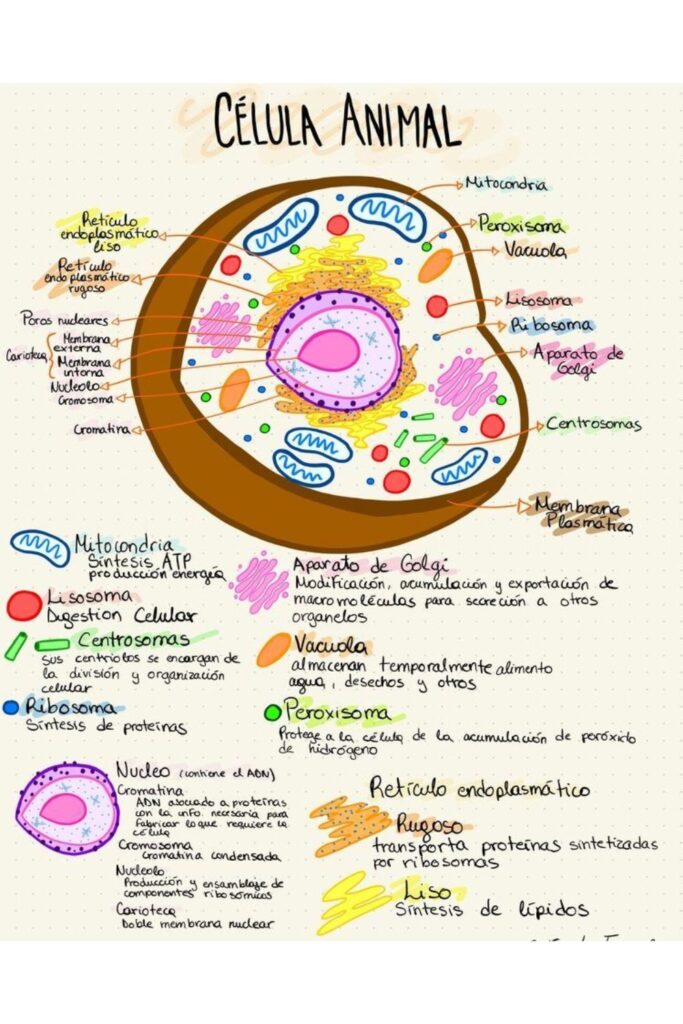 CÉLULA ANIMAL
Retículo
endoplasmático
liso
Retículo
endoplasmático
rugoso
Poros nucleares
Carioteca
Membrana
externa
Membrana
interna
Nucleolo
Cromosoma
Cromatina
Mitocondria
Peroxisoma
Vacuola
Lisosoma
Ribosoma
Aparato de
Golgi
Centrosomas
Membrana
Plasmática
Mitocondria
Síntesis ATP
producción energía
Lisosoma
Digestion Celular
Centrosomas
sus centriolos se encargan de
la división y organización
celular
Ribosoma
Síntesis de proteínas
Aparato de Golgi
Modificación, acumulación y exportación de
macromoléculas para secreción a otros
organelos
Vacuola
almacenan temporalmente alimento
agua, desechos y otros
Peroxisoma
Protege a la célula de la acumulación de peróxido
de hidrógeno
Nucleo (contiene el ADN)
Cromatina
ADN asociado a proteínas
con la info. necesaria para
fabricar lo que requiere la
célula
Cromosoma
Cromatina condensada
Nucleolo
Producción y ensamblaje de
componentes ribosómicos
Carioteca
Doble membrana nuclear
Retículo endoplasmático
Rugoso
transporta proteínas sintetizadas
por ribosomas
Liso
Síntesis de lípidos